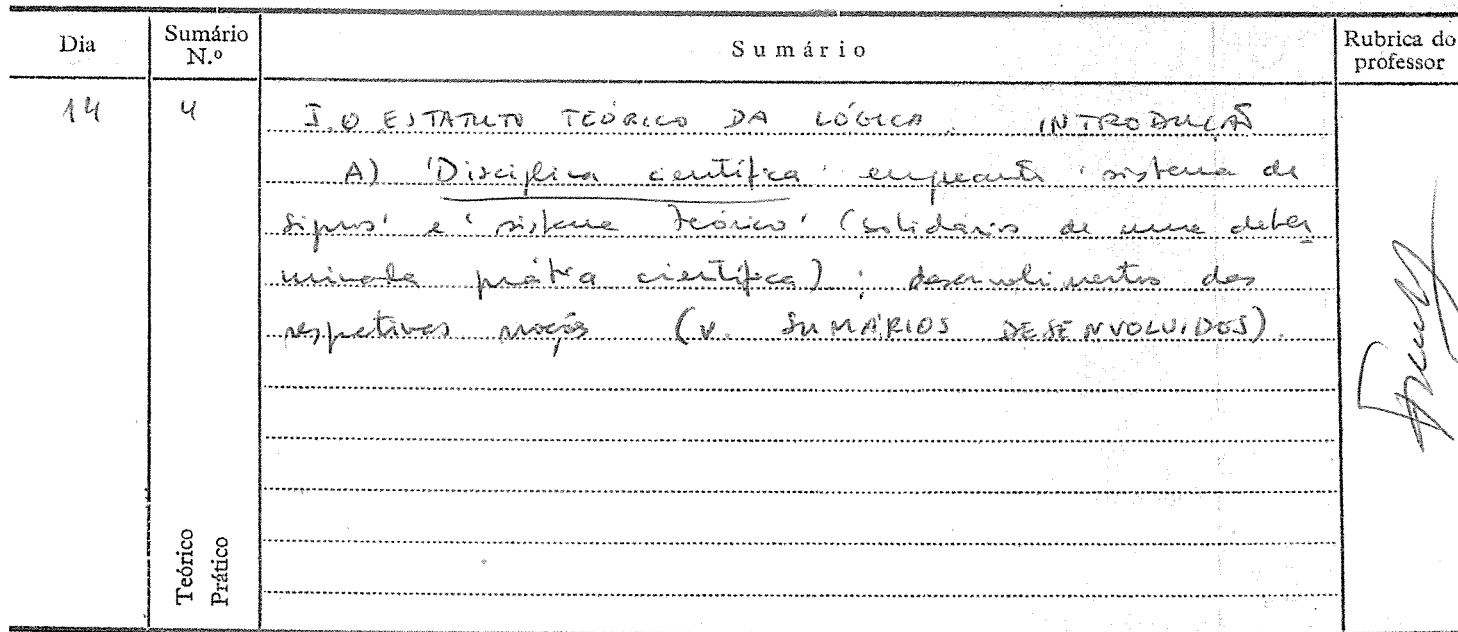 Dia
Sumário N.º
Sumário
Rubrica do professor
14
4
I. O ESTATUTO TEÓRICO DA LÓGICA. INTRODUÇÃO
A) 'Disciplina científica' enquanto 'sistema de
signos' e 'sistema teórico' (solidário de uma deter
minada prática científica); desenvolvimentos das
respetivas noções (v. SUMÁRIOS DESENVOLVIDOS).
Teórico
Prático